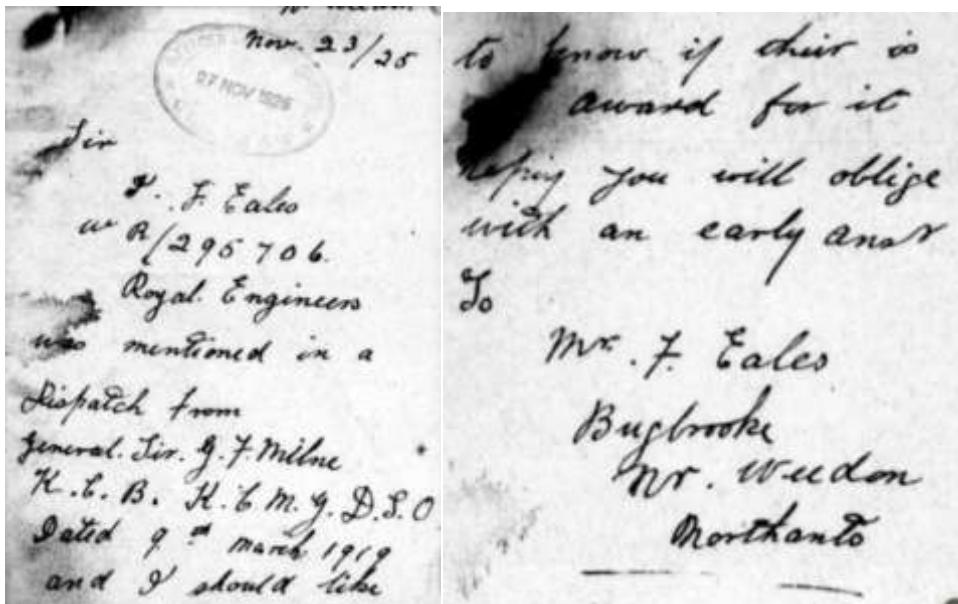 Nov. 23/25
27 NOV 1925
Sir
I. F Eales
WR/295706.
Royal. Engineers
was mentioned in a
Dispatch from
General. Sir. G. F. Milne
K.C.B. K.C.M.G. D.S.O
Dated 9th March 1919
and I should like
to know if their is
award for it
hoping you will oblige
with an early ansr
To
Mr. F. Eales
Bugbrooke
Nr. Weedon
Northants